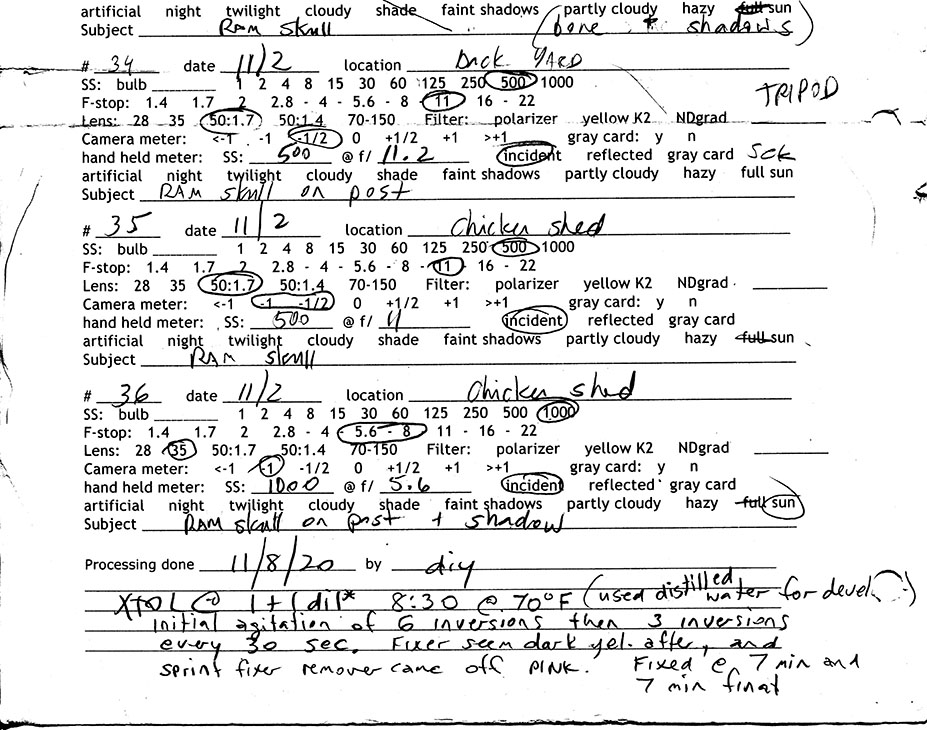 artificial night twilight cloudy shade faint shadows partly cloudy hazy full sun
Subject RAM skull (bone + shadows)
# 34 date 11/2 location Back YARD
SS: bulb 1 2 4 8 15 30 60 125 250 500 1000
F-stop: 1.4 1.7 2 2.8 - 4 - 5.6 - 8 - 11 16 - 22
TRIPOD
Lens: 28 35 50:1.7 50:1.4 70-150 Filter: polarizer yellow K2 NDgrad
Camera meter: <-1 -1 -1/2 0 +1/2 +1 >+1 gray card: y n
hand held meter: SS: 500 @ f/ 11.2 incident reflected gray card
artificial night twilight cloudy shade faint shadows partly cloudy hazy full sun
Subject RAM skull on post
# 35 date 11/2 location Chicken shed
SS: bulb 1 2 4 8 15 30 60 125 250 500 1000
F-stop: 1.4 1.7 2 2.8 - 4 - 5.6 - 8 - 11 - 16 - 22
Lens: 28 35 50:1.7 50:1.4 70-150 Filter: polarizer yellow K2 NDgrad
Camera meter: <-1 -1 -1/2 0 +1/2 +1 >+1 gray card: y n
hand held meter: SS: 500 @ f/ 11 incident reflected gray card
artificial night twilight cloudy shade faint shadows partly cloudy hazy full sun
Subject RAM skull
# 36 date 11/2 location Chicken shed
SS: bulb 1 2 4 8 15 30 60 125 250 500 1000
F-stop: 1.4 1.7 2 2.8 - 4 - 5.6 - 8 - 11 - 16 - 22
Lens: 28 35 50:1.7 50:1.4 70-150 Filter: polarizer yellow K2 NDgrad
Camera meter: <-1 -1 -1/2 0 +1/2 +1 >+1 gray card: y n
hand held meter: SS: 1000 @ f/ 5.6 incident reflected gray card
artificial night twilight cloudy shade faint shadows partly cloudy hazy full sun
Subject RAM skull on post + shadow
Processing done 11/8/20 by diy
XTOL @ 1+1 dil* 8:30 @ 70°F (used distilled water for devel.)
Initial agitation of 6 inversions then 3 inversions
every 30 sec. Fixer seem dark yel. after, and
sprint fixer remover came off PINK. Fixed @ 7 min and
7 min final